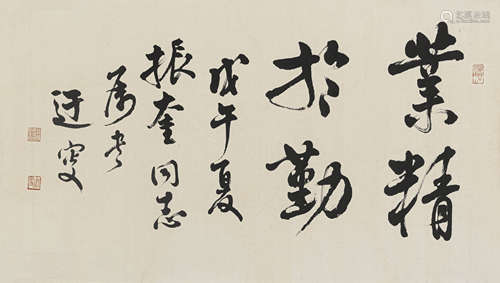 業精
於勤
戊午夏
振奎同志
属書
迂叟